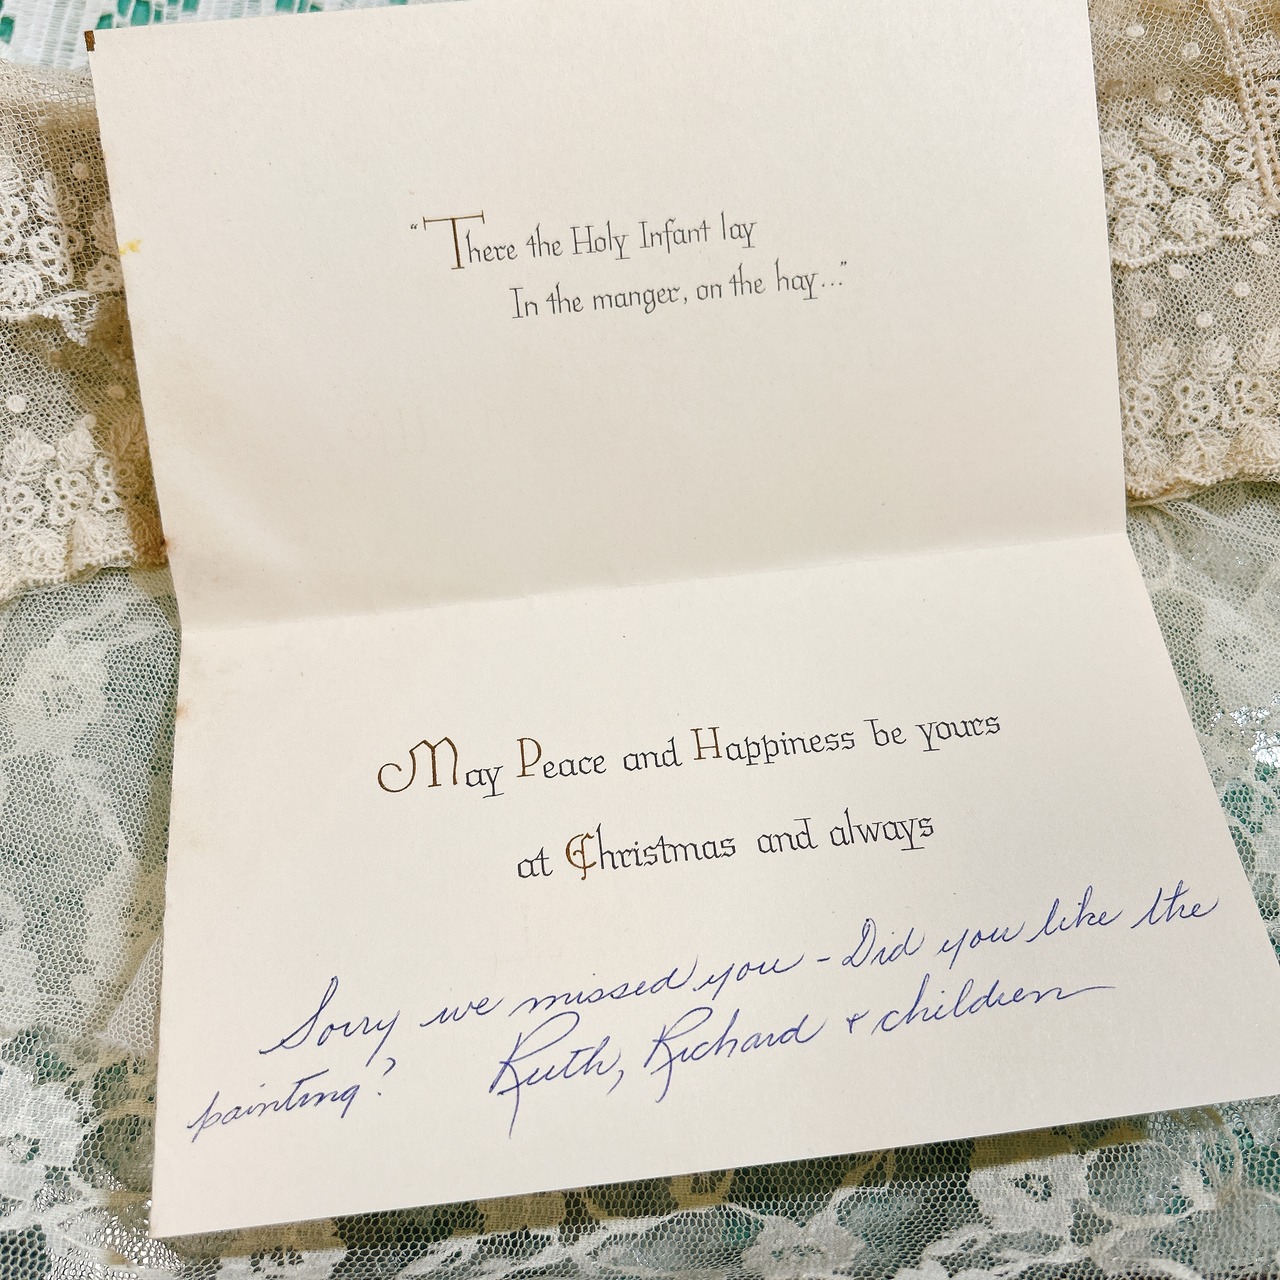 “There the Holy Infant lay
In the manger, on the hay...”
May Peace and Happiness be yours
at Christmas and always
Sorry we missed you - Did you like the
painting? Ruth, Richard + children